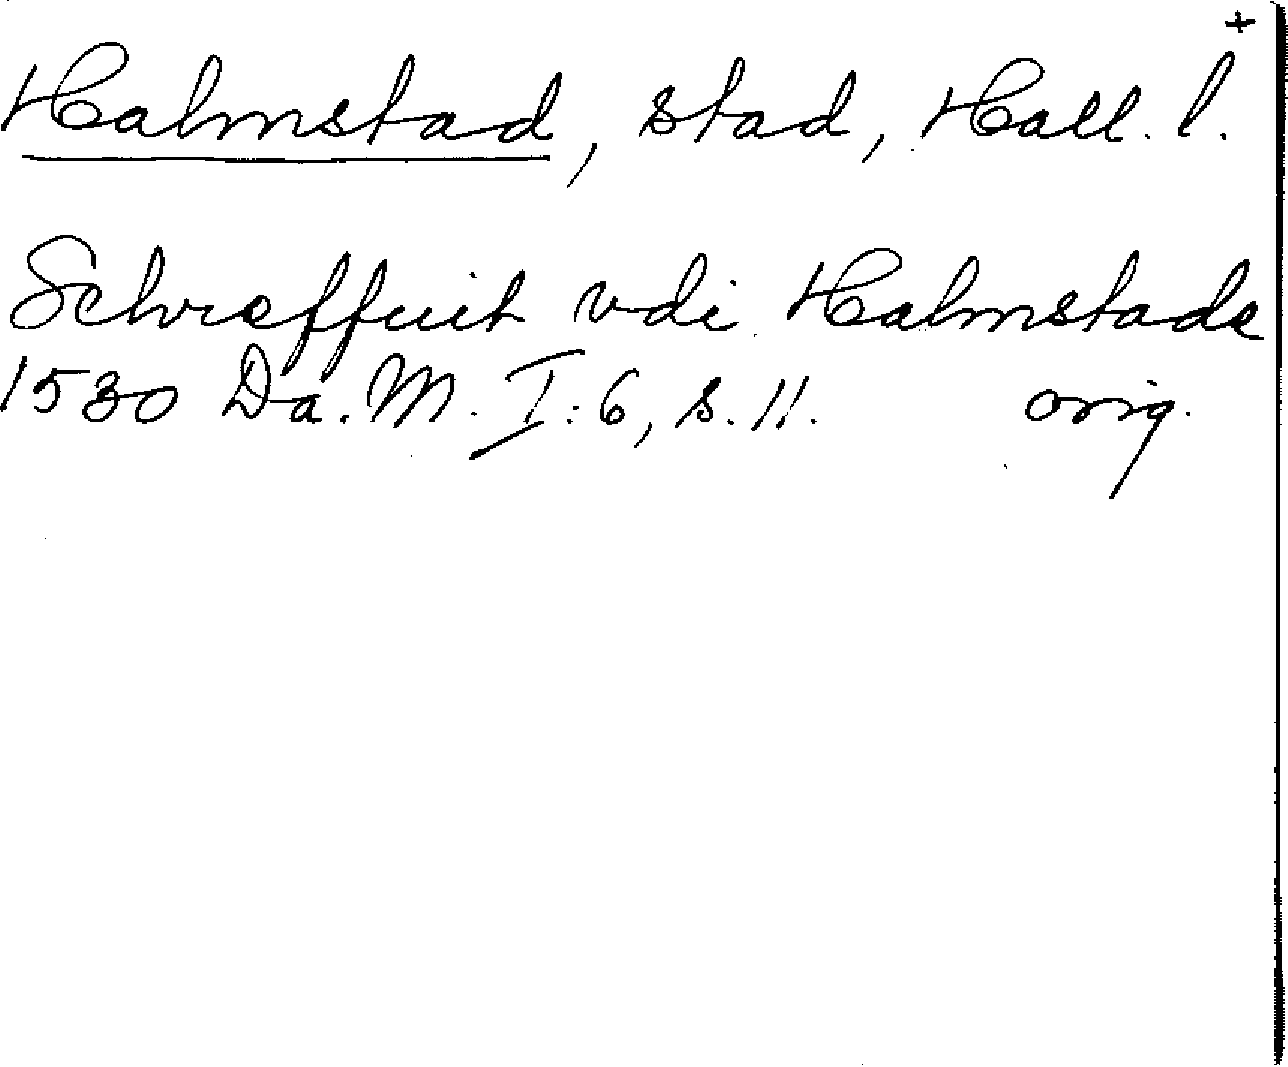 +
Halmstad, stad, Hall. l.
Schreffuit vdi Halmstade
1530 Da. M. I: 6, s. 11. orig.